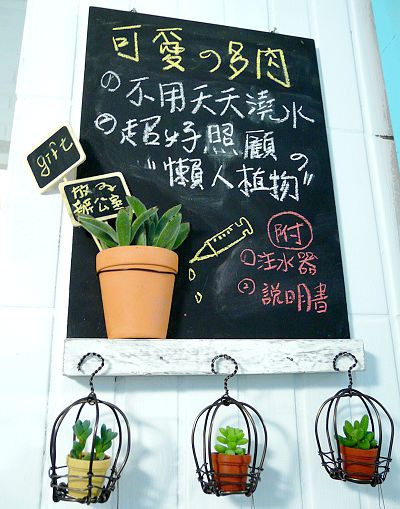 可愛の多肉
①不用天天澆水
②超好照顧の
"懶人植物"
gift
放の
辦公室
附
①注水器
②說明書